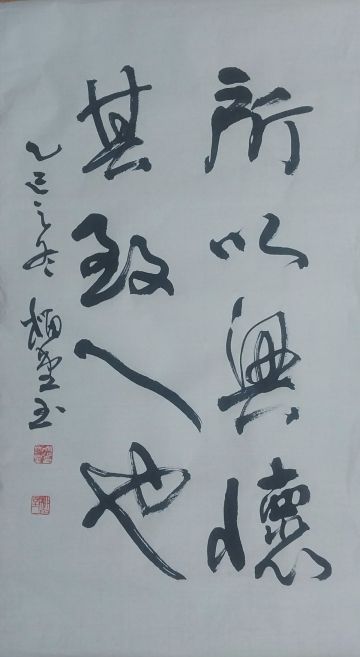 所以興懷
其致一也
乙巳之冬